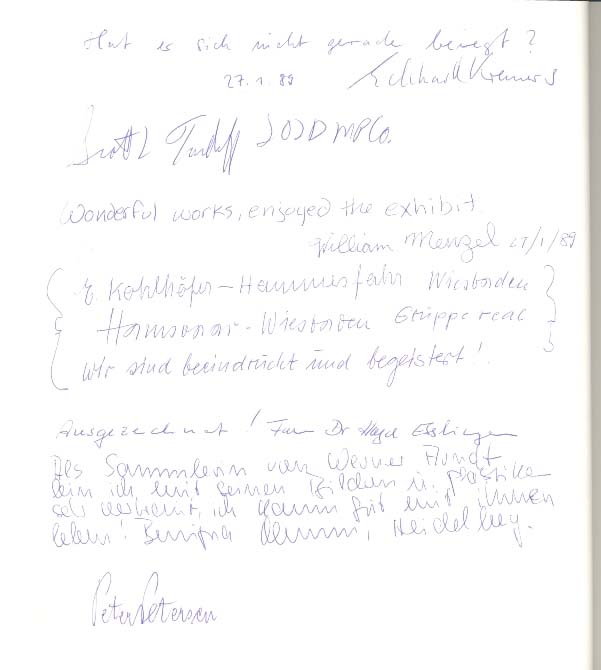 Hat es sich nicht gerade bewegt?
27.1.89 Eckhard Kremers
Scott L
Wonderful works, enjoyed the exhibit
William Menzel 27/1/89
E. Kohlhöfer-Hammesfahr Wiesbaden
Wiesbaden Gruppe real
Wir sind beeindruckt und begeistert!
Ausgezeichnet! Dr Esslingen
Als Sammlerin von Werner
bin ich mit seinen Bildern u. Plastiken
sehr vertraut, ich kann gut mit ihnen
leben! Heidelberg.
Peter Petersen